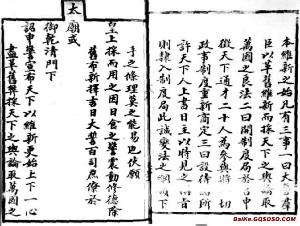 本維新之始凡有三事一曰大誓羣
臣以革舊維新而採天下之輿論取
萬國之良法二曰開制度局於宮中
徵天下通才二十人為參與將一切
政事制度重新商定三曰設待詔所
許天下人上書日主以時見之稱旨
則隸入制度局此誠變法之綱領下
手之條理莫之能易也伏願
皇上採而用之因日食之警震動修德除
舊布新擇吉日大誓百司庶僚於
太廟或
御乾清門下
詔申誓宣布天下以維新更始上下一心
盡革舊弊採天下之輿論取萬國之
BaiKe.GQSOSO.COM